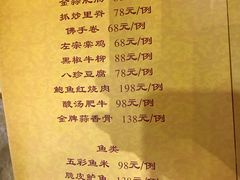 抓炒里脊 78元/例
佛手卷 68元/例
左宗棠鸡 68元/例
黑椒牛柳 88元/例
八珍豆腐 78元/例
鲍鱼红烧肉 198元/例
酸汤肥牛 98元/例
金牌蒜香骨 138元/例
鱼类
五彩鱼米 98元/例
脆皮鲈鱼